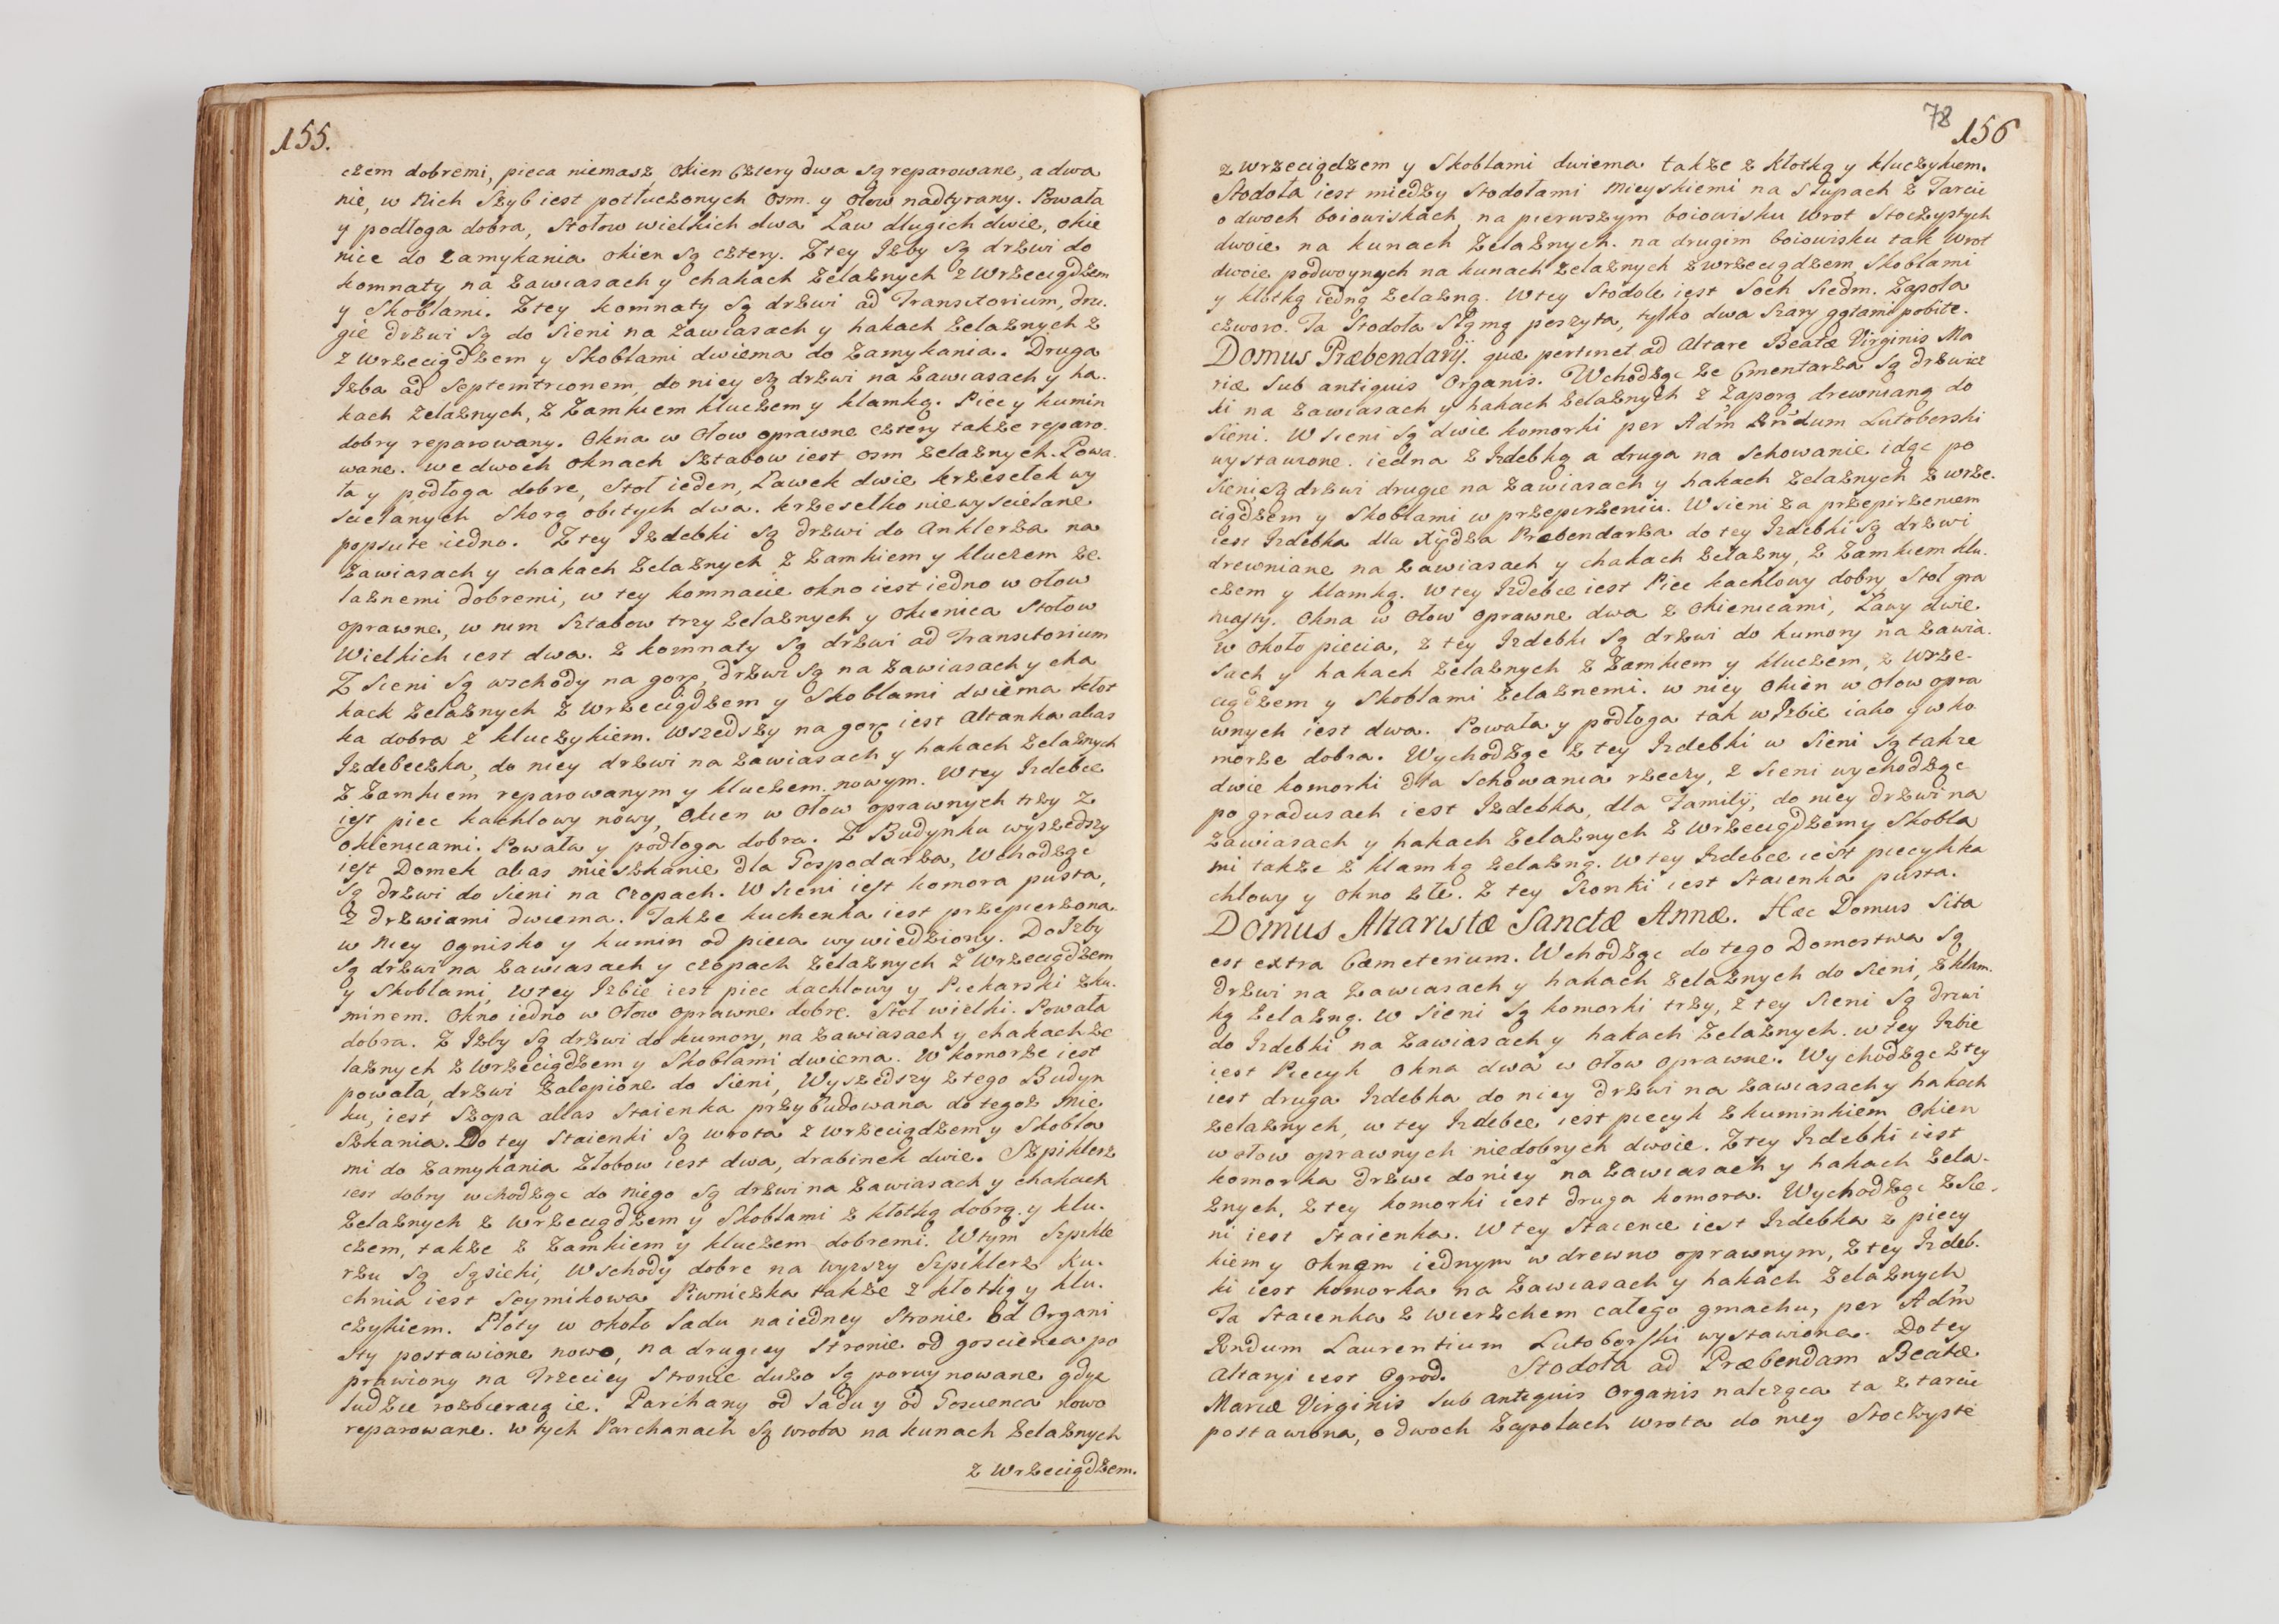 155.
czem dobremi, pieca niemasz Okien Cztery dwa są reparowane, a dwa
nie, w Nich Szyb iest potłuczonych Osm. y ołow nadtyrany. Powała
y podłoga dobra, Stołow wielkich dwa Law dlugich dwie, okie
nice do zamykania okien są cztery. Z tey Izby są drzwi do
komnaty na Zawiasach y chakach Zelaznych z Wrzeciądzem
y Skoblami. Z tey komnaty są drzwi ad Transitorium, dru.
gie drzwi są do Sieni na zawiasach y hakach Zelaznych z
z wrzeciądzem y Skoblami dwiema do Zamykania. Druga
Izba ad Septemtrionem, do niey są drzwi na Zawiasach y ha.
kach Zelaznych, z Zamkiem kluczem y klamką. Piec y kumin
dobry reparowany. Okna w Ołow oprawne cztery także reparo.
wane. we dwoch oknach Sztabow iest osm zelaznych. Powa.
ła y podłoga dobre, Stoł ieden, Lawek dwie krzesełek wy
scielanych Skorą obitych dwa. krzesełko niewyscielane
popsute iedno. Z tey Izdebki są drzwi do Anklerza na
Zawiasach y chakach Zelaznych z Zamkiem y kluczem że.
laznemi dobremi, w tey komnacie okno iest iedno w ołow
oprawne, w nim Sztabow trzy zelaznych y Okienica Stołow
Wielkich iest dwa. z komnaty są drzwi ad Transitorium
Z Sieni są wschody na gorę, drzwi są na zawiasach y cha
kach Zelaznych z Wrzeciądzem y Skoblami dwiema kłot
ka dobra z kluczykiem. Wszedszy na gorę iest Altanka alias
Izdebeczka, do niey drzwi na zawiasach y hakach Zelaznych
z Zamkiem reparowanym y kluczem nowym. W tey Izdebce
iest piec kachlowy nowy, Okien w Ołow oprawnych trzy z
okienicami. Powała y podłoga dobra. Z Budynku wyszedszy
iest Domek alias mieszkanie dla Gospodarza, Wchodząc
są drzwi do Sieni na Czopach. W Sieni iest komora pusta,
z drzwiami dwiema. Także kuchenka iest przepierzona
w niey Ognisko y kumin od pieca wywiedziony. Do Izby
są drzwi na zawiasach y czopach Zelaznych z Wrzeciądzem
y Skoblami, W tey Izbie iest piec kachlowy y Piekarski z ku.
minem. Okno iedno w Ołow oprawne dobre. Stoł wielki. Powała
dobra. Z Izby są drzwi do kumory, na zawiasach y chakach że
laznych z Wrzeciądzem y Skoblami dwiema. W komorze iest
powała, drzwi Zalepione do Sieni, Wyszedszy z tego Budyn
ku, iest Szopa alias Staienka przybudowana do tegoż Mie
szkania. Do tey Staienki są wrota z wrzeciądzem y Skobla
mi do zamykania Złobow iest dwa, drabinek dwie. Szpiklerz
iest dobry wchodząc do niego są drzwi na zawiasach y chakach
Zelaznych z wrzeciądzem y Skoblami z kłotką dobrą y klu.
czem, także z Zamkiem y kluczem dobremi. W tym Szpikle
rzu są Sąsieki, Wschody dobre na wyzszy Szpiklerz Ku.
chnia iest Seymikowa Piwniczka także z kłotką y klu.
czykiem. Płoty w około Sadu na iedney Stronie od Organi
sty postawione nowo, na drugiey Stronie od goscienca po
prawiony na Trzeciey Stronie dużo są porujnowane gdyz
ludzie rozbieraią ie. Parchany od Sadu y od Goscienca nowo
reparowane. w tych Parchanach są wrota na kunach Zelaznych
z Wrzeciądzem.
78
156
z wrzeciądzem y Skoblami dwiema także z kłotką y kluczykiem.
Stodoła iest miedzy Stodołami Mieyskiemi na Słupach z Tarcic
o dwoch boiowiskach, na pierwszym boiowisku Wrot Stoczystych
dwoie na kunach Zelaznych. na drugim boiowisku tak Wrot
dwoie podwoynych na kunach zelaznych z wrzeciądzem Skoblami
y klotką iedną Zelazną. W tey Stodole iest Soch Siedm. Zapola
czworo. Ta Stodoła Słomą poszyta, tylko dwa Szary gątami pobite.
Domus Præbendarÿ. quæ pertinet ad Altare Beatæ Virginis Ma
riæ Sub antiquis Organis. Wchodząc ze Cmentarza są drzwicz
ki na zawiasach y hakach Zelaznych z Zaporą drewnianą do
Sieni. W Sieni są dwie komorki per Adm Rndum Lutoborski
wystawione. iedna z Izdebką a druga na Schowanie idąc po
Sieni są drzwi drugie na zawiasach y hakach Zelaznych z wrze.
ciądzem y Skoblami w przepirzeniu. W sieni za przepirzeniem
iest Izdebka dla Xiędza Præbendarza do tey Izdebki są drzwi
drewniane na zawiasach y chakach Zelazny, z Zamkiem klu.
czem y klamką. W tey Izdebce iest Piec kachlowy dobry Stoł gra
niasty. Okna w Ołow oprawne dwa z Okienicami, Lawy dwie
w około piecia, z tey Izdebki są drzwi do kumory na zawia.
sach y hakach Zelaznych z Zamkiem y kluczem, z Wrze-
ciądzem y Skoblami Zelaznemi. w niey Okien w Ołow opra
wnych iest dwa. Powała y podłoga tak w Izbie iako y w ko
morze dobra. Wychodząc z tey Izdebki w Sieni są także
dwie komorki dla Schowania rzeczy, z Sieni wychodząc
po gradusach iest Izdebka, dla Familÿ, do niey drzwi na
zawiasach y hakach zelaznych z Wrzeciądzem y Skobla
mi także z klamką zelazną. W tey Izdebce iest piecyk ka
chlowy y okno złe. Z tey Sionki iest Staienka pusta.
Domus Altaristæ Sanctæ Annæ. Hæc Domus Sita
est extra Cæmeterium. Wchodząc do tego Domostwa są
drzwi na Zawiasach y hakach Zelaznych do Sieni, z klam.
ką Zelazną. W Sieni są komorki trzy, z tey Sieni są drzwi
do Izdebki na Zawiasach y hakach Zelaznych. w tey Izbie
iest Piecyk Okna dwa w Ołow oprawne. Wychodząc z tey
iest druga Izdebka do niey drzwi na zawiasach y hakach
zelaznych, w tey Izdebce iest piecyk z kuminkiem Okien
w ołow oprawnych niedobrych dwoie. Z tey Izdebki iest
komorka drzwi do niey na zawiasach y hakach Zela-
znych, z tey komorki iest druga komora. Wychodząc z Sie.
ni iest Staienka. W tey Staience iest Izdebka z piecy
kiem y oknem iednym w drewno oprawnym, z tey Izdeb.
ki iest komorka na Zawiasach y hakach Zelaznych,
Ta Staienka z wierzchem całego gmachu, per Adm
Rndum Laurentium Lutoborski wystawiona. Do tey
Altaryi iest Ogrod. Stodoła ad Præbendam Beatæ
Mariæ Virginis Sub antiquis Organis nalezgca ta z tarcic
postawiona, o dwoch Zapolach wrota do niey Stoczyste